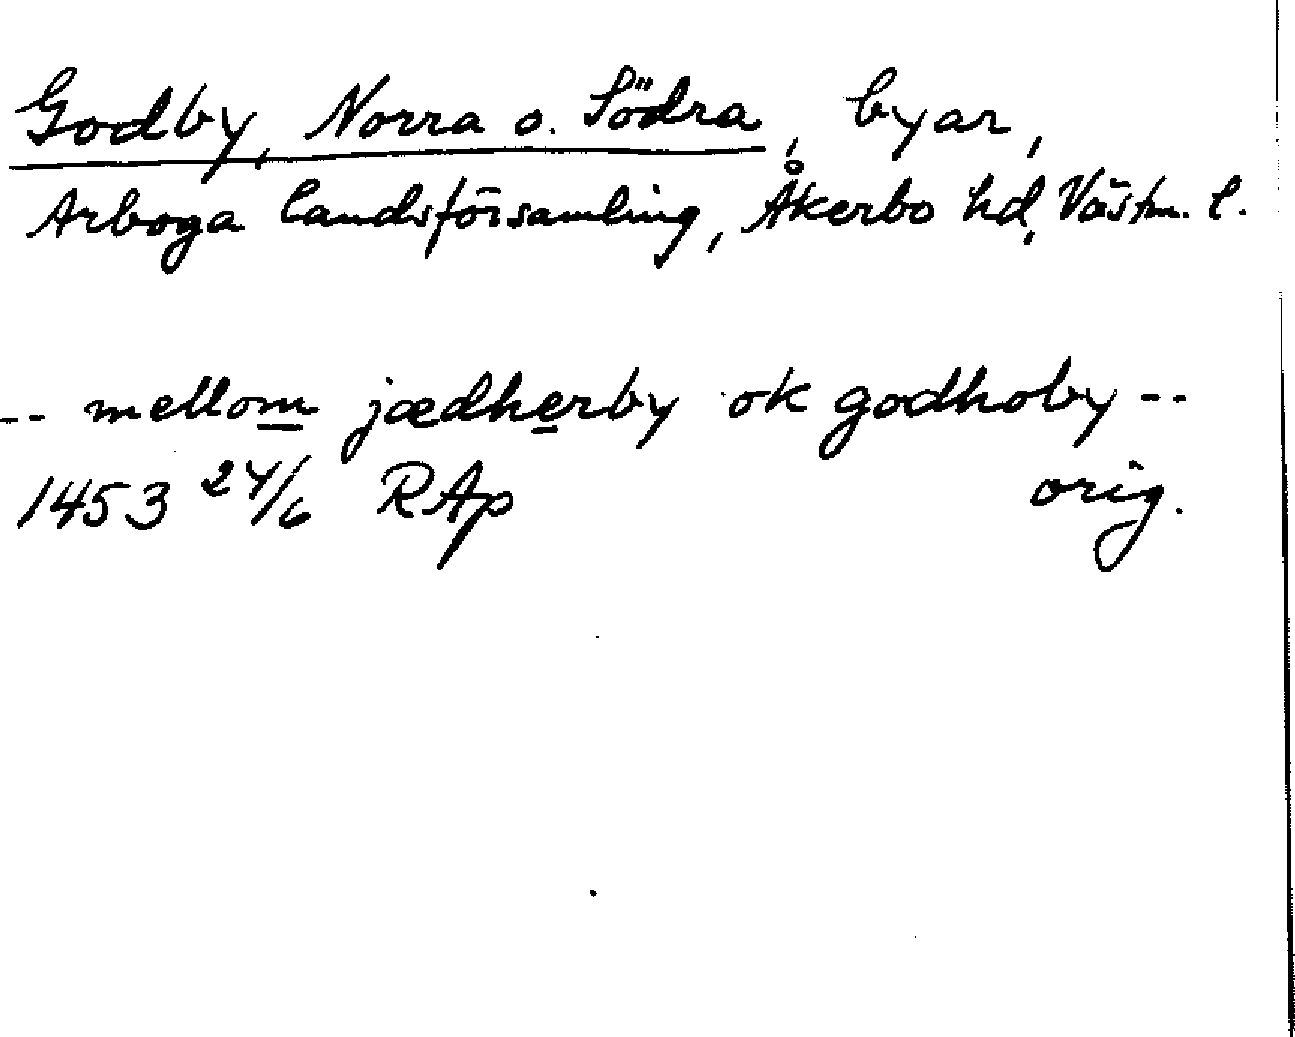 Godby, Norra o. Södra, byar,
Arboga landsförsamling, Åkerbo hd, Västm. l.
-- mellom jædherby ok godhoby --
1453 24/6 RAp orig.